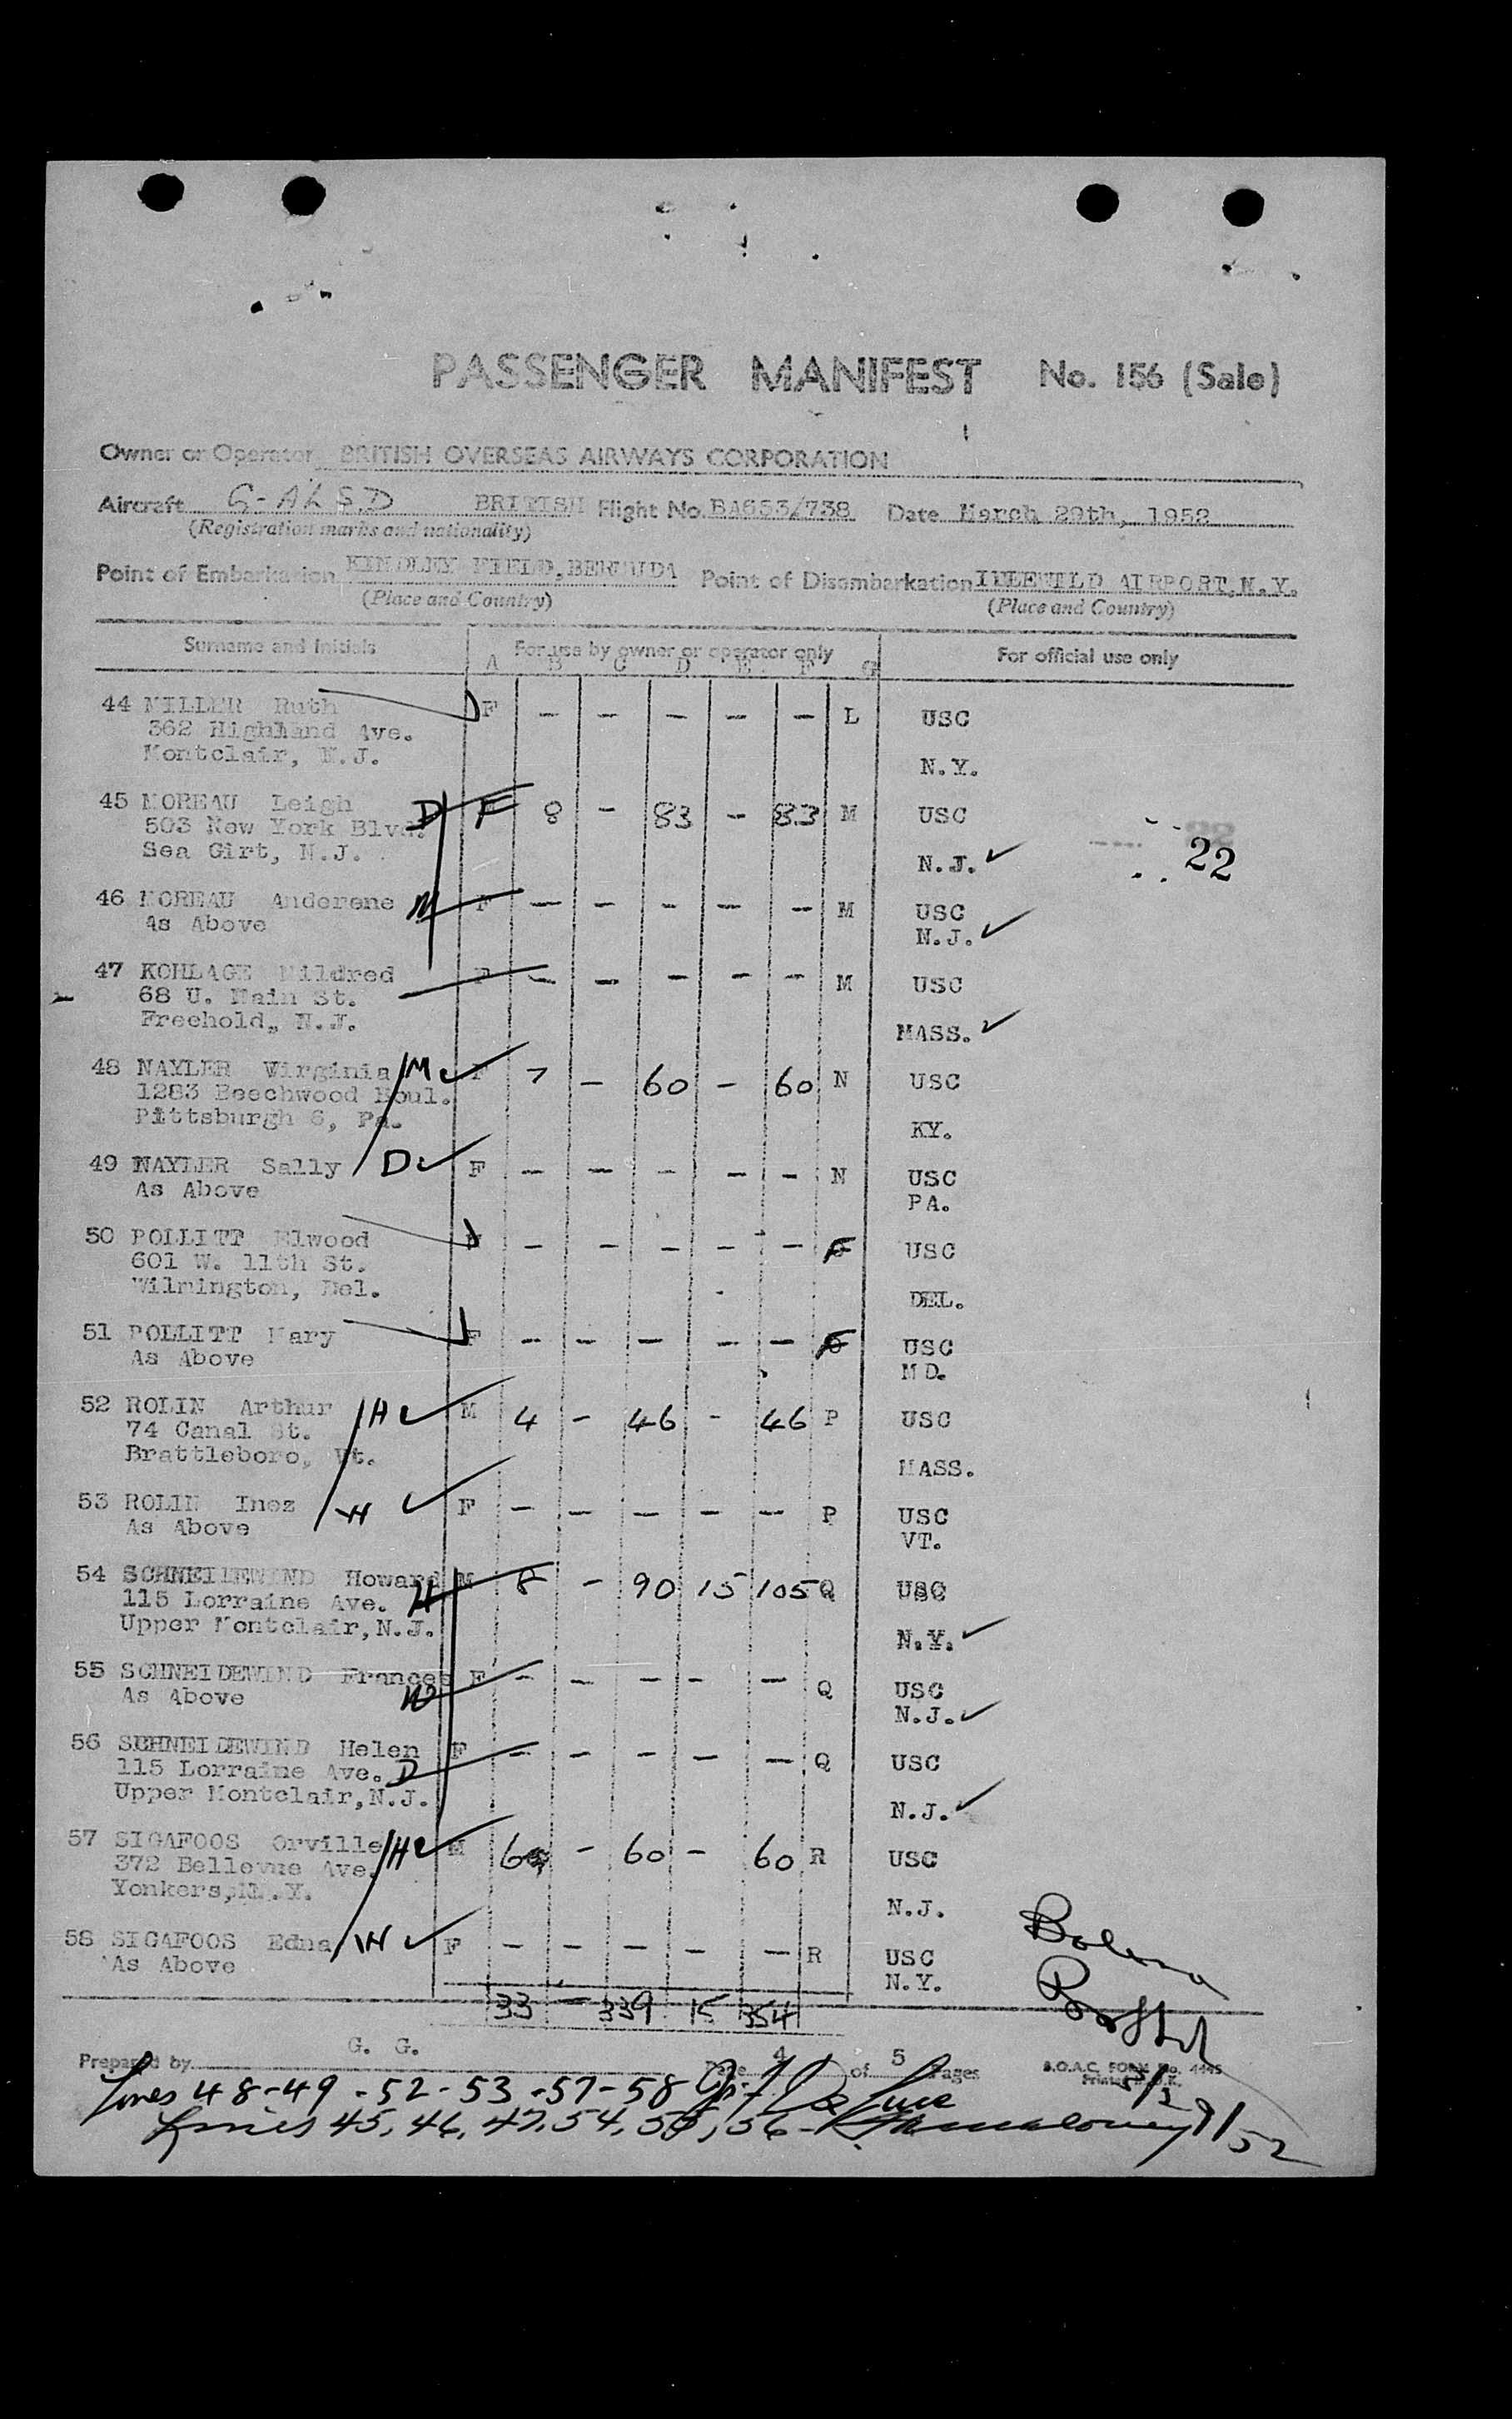 PASSENGER MANIFEST No. 156 (Sale)
Owner or Operator BRITISH OVERSEAS AIRWAYS CORPORATION
Aircraft G-ALSD BRITISH Flight No. BA653/738 Date March 29th, 1952
(Registration marks and nationality)
Point of Embarkation KINDLEY FIELD, BERMUDA Point of Disembarkation IDLEWILD AIRPORT, N.Y.
(Place and Country) (Place and Country)
Surname and Initials For use by owner or operator only For official use only
A B C D E F G
44 MILLER Ruth F - - - - - L USC
362 Highland Ave.
Montclair, N.J. N.Y.
45 MOREAU Leigh D F 8 - 83 - 83 M USC
503 New York Blvd.
Sea Girt, N.J. N.J. ✓ 22
46 MOREAU Anderene M F - - - - - M USC
As Above N.J. ✓
47 KOHLAGE Mildred F - - - - - M USC
68 U. Main St.
Freehold, N.J. MASS. ✓
48 NAYLER Virginia M ✓ F 7 - 60 - 60 N USC
1283 Beechwood Boul.
Pittsburgh 6, Pa. KY.
49 NAYLER Sally D ✓ F - - - - - N USC
As Above PA.
50 POLLITT Elwood - - - - - USC
601 W. 11th St.
Wilmington, Del. DEL.
51 POLLITT Mary F - - - - - USC
As Above MD.
52 ROLIN Arthur H ✓ M 4 - 46 - 46 P USC
74 Canal St.
Brattleboro, Vt. MASS.
53 ROLIN Inez W ✓ F - - - - - P USC
As Above VT.
54 SCHNEIDEWIND Howard H M 8 - 90 15 105 Q USC
115 Lorraine Ave.
Upper Montclair, N.J. N.Y. ✓
55 SCHNEIDEWIND Frances F - - - - - Q USC
As Above W N.J. ✓
56 SCHNEIDEWIND Helen F - - - - - Q USC
115 Lorraine Ave. D
Upper Montclair, N.J. N.J. ✓
57 SIGAFOOS Orville H ✓ M 6 - 60 - 60 R USC
372 Bellevue Ave.
Yonkers, N.Y. N.J.
58 SIGAFOOS Edna W ✓ F - - - - - R USC
As Above N.Y.
33 - 339 15 354
G. G.
Prepared by Page 4 of 5 Pages B.O.A.C. FORM No. 4445
Lines 48-49-52-53-57-58
Lines 45, 46, 47, 54, 55, 56 -